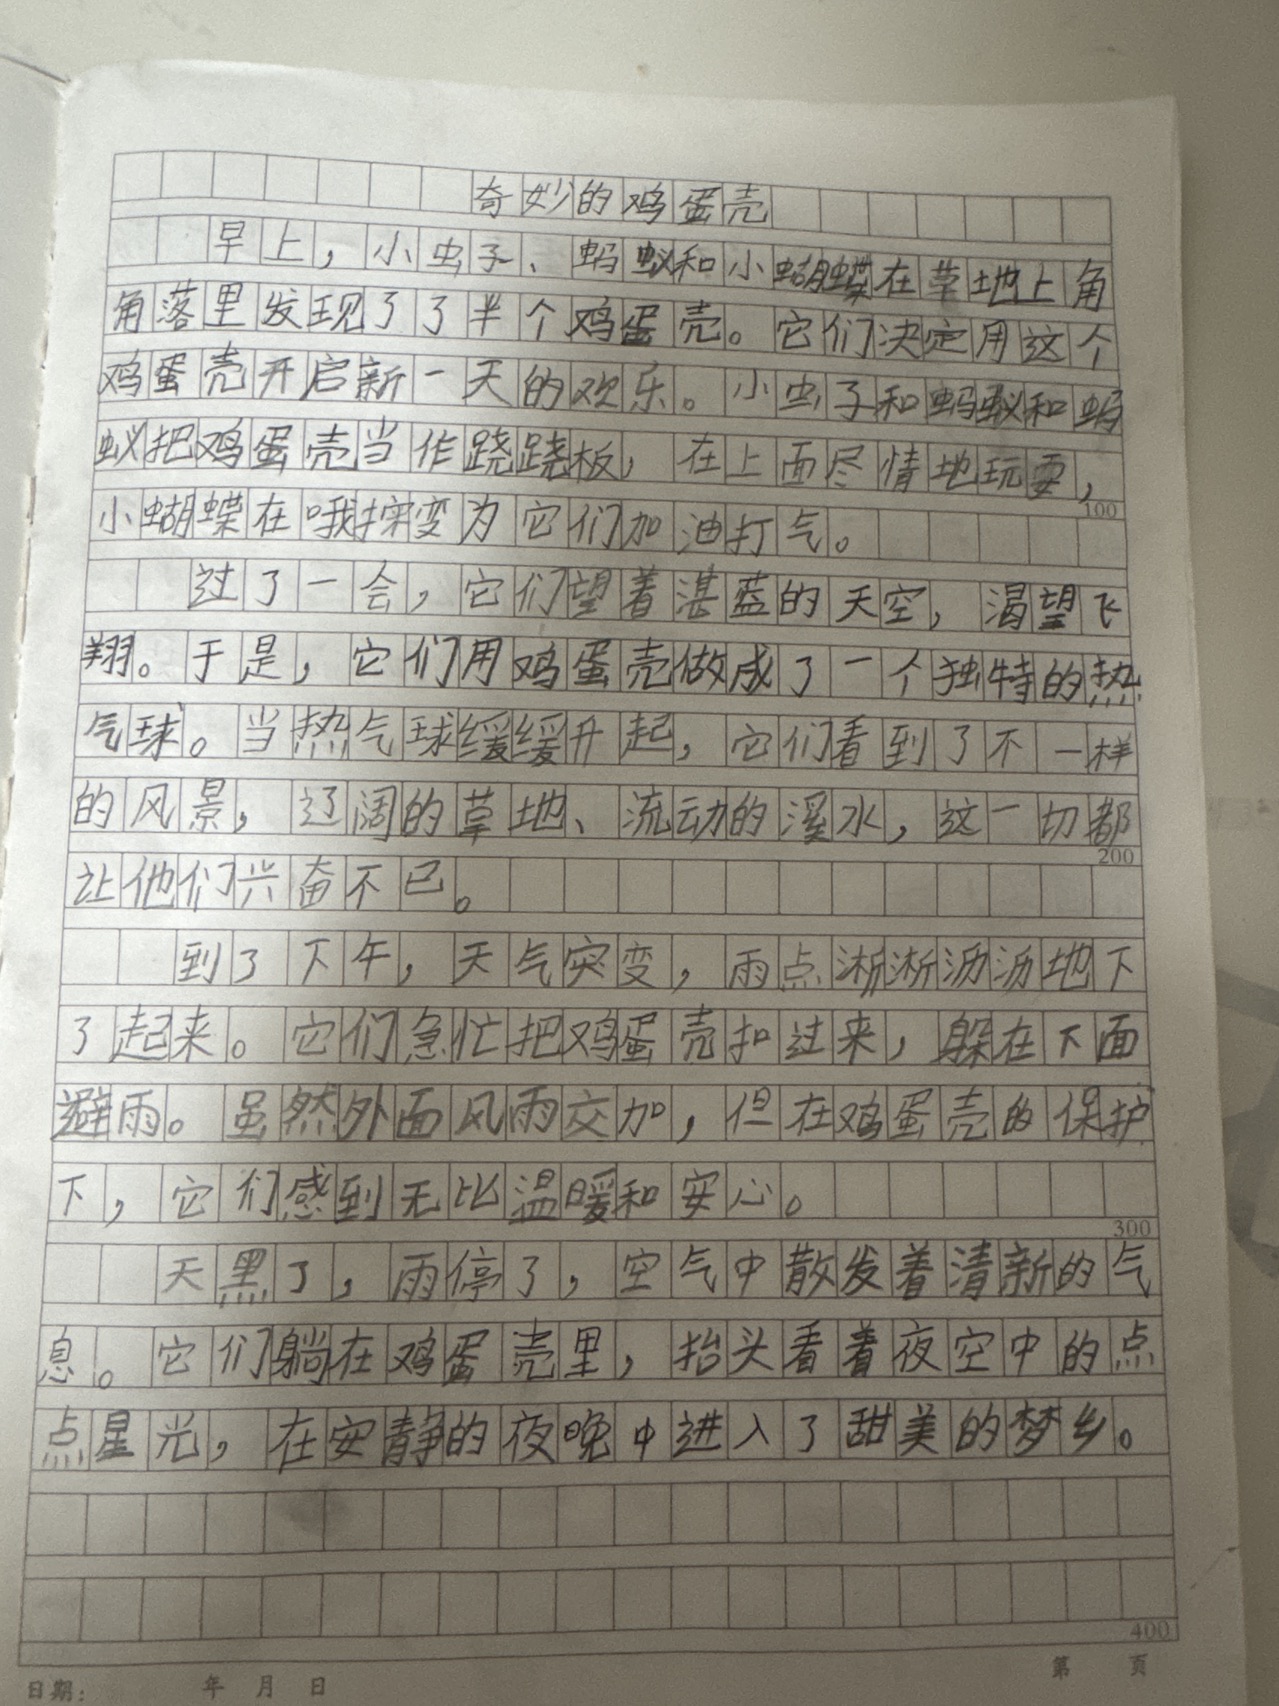 奇妙的鸡蛋壳
早上，小虫子、蚂蚁和小蝴蝶在草地上角
角落里发现了了半个鸡蛋壳。它们决定用这个
鸡蛋壳开启新一天的欢乐。小虫子和蚂蚁和蚂
蚁把鸡蛋壳当作跷跷板，在上面尽情地玩耍，
小蝴蝶在哦探变为它们加油打气。
100
过了一会，它们望着湛蓝的天空，渴望飞
翔。于是，它们用鸡蛋壳做成了一个独特的热
气球。当热气球缓缓升起，它们看到了不一样
的风景，辽阔的草地、流动的溪水，这一切都
200
让他们兴奋不已。
到了下午，天气突变，雨点淅淅沥沥地下
了起来。它们急忙把鸡蛋壳扣过来，躲在下面
避雨。虽然外面风雨交加，但在鸡蛋壳的保护
下，它们感到无比温暖和安心。
300
天黑了，雨停了，空气中散发着清新的气
息。它们躺在鸡蛋壳里，抬头看着夜空中的点
点星光，在安静的夜晚中进入了甜美的梦乡。
400
日期： 年 月 日 第 页